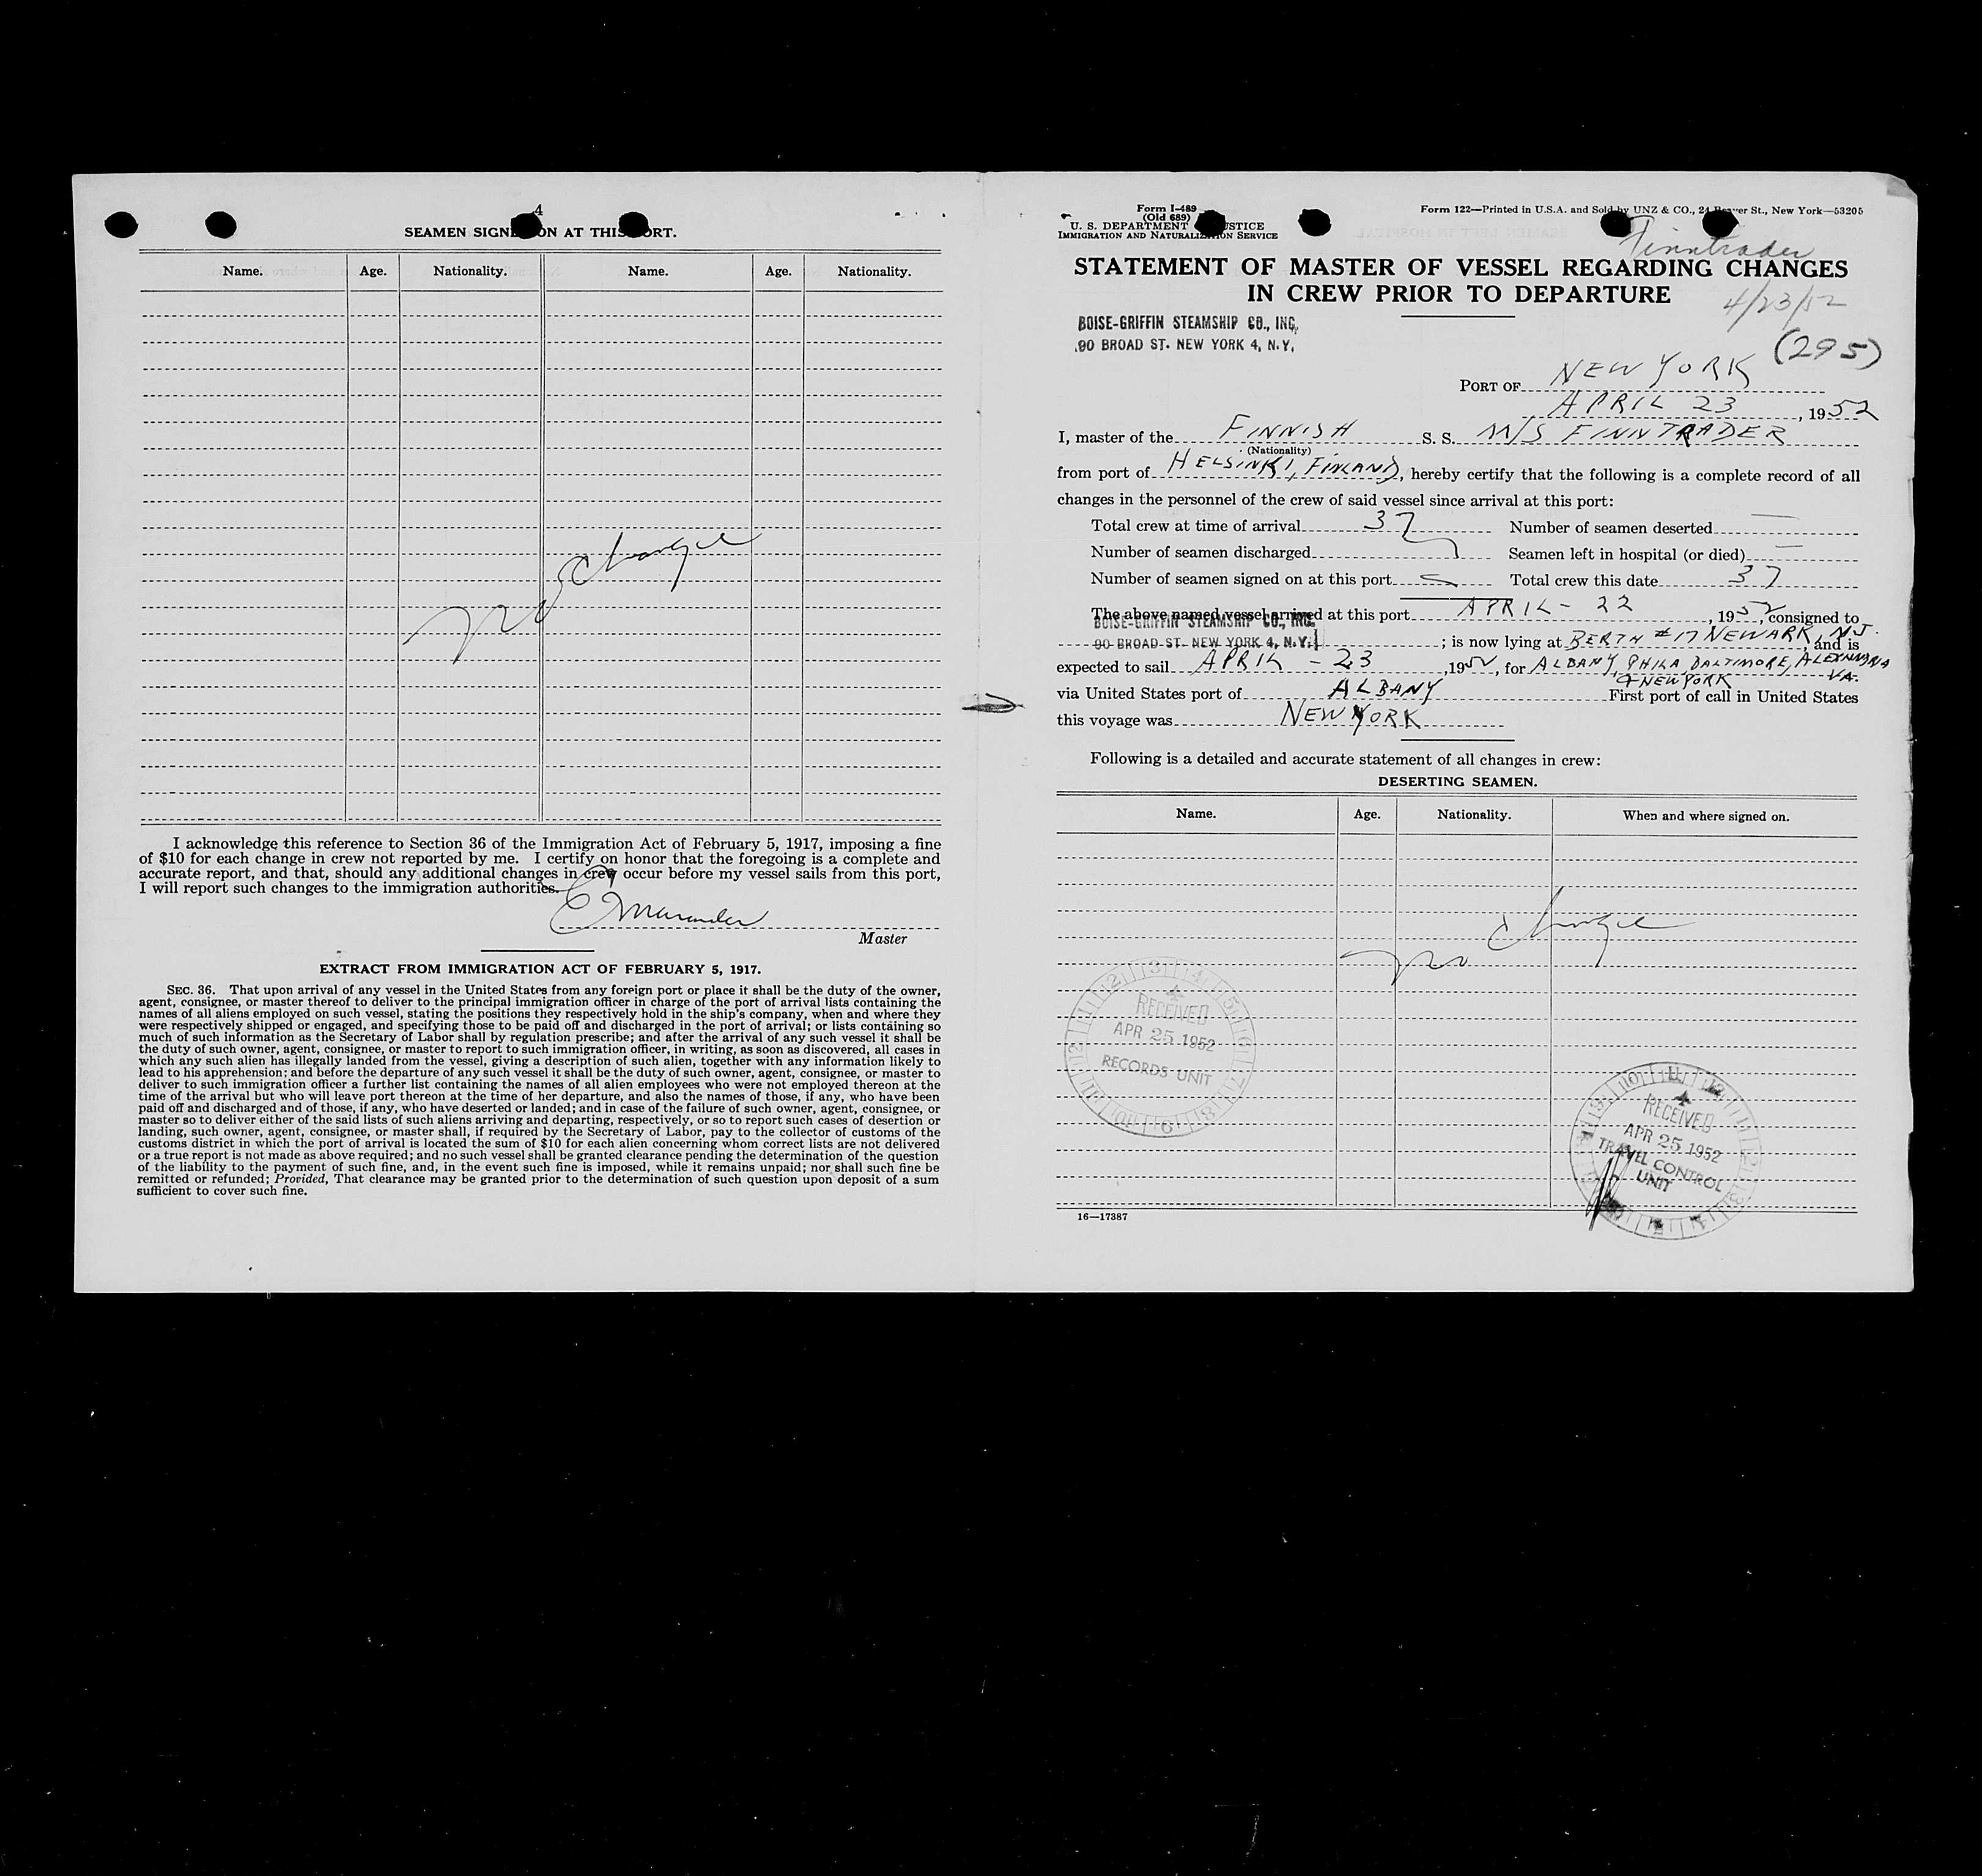 4
SEAMEN SIGNED ON AT THIS PORT.
Name. Age. Nationality. Name. Age. Nationality.
no change
I acknowledge this reference to Section 36 of the Immigration Act of February 5, 1917, imposing a fine
of $10 for each change in crew not reported by me. I certify on honor that the foregoing is a complete and
accurate report, and that, should any additional changes in crew occur before my vessel sails from this port,
I will report such changes to the immigration authorities.
Master
EXTRACT FROM IMMIGRATION ACT OF FEBRUARY 5, 1917.
SEC. 36. That upon arrival of any vessel in the United States from any foreign port or place it shall be the duty of the owner,
agent, consignee, or master thereof to deliver to the principal immigration officer in charge of the port of arrival lists containing the
names of all aliens employed on such vessel, stating the positions they respectively hold in the ship's company, when and where they
were respectively shipped or engaged, and specifying those to be paid off and discharged in the port of arrival; or lists containing so
much of such information as the Secretary of Labor shall by regulation prescribe; and after the arrival of any such vessel it shall be
the duty of such owner, agent, consignee, or master to report to such immigration officer, in writing, as soon as discovered, all cases in
which any such alien has illegally landed from the vessel, giving a description of such alien, together with any information likely to
lead to his apprehension; and before the departure of any such vessel it shall be the duty of such owner, agent, consignee, or master to
deliver to such immigration officer a further list containing the names of all alien employees who were not employed thereon at the
time of the arrival but who will leave port thereon at the time of her departure, and also the names of those, if any, who have been
paid off and discharged and of those, if any, who have deserted or landed; and in case of the failure of such owner, agent, consignee, or
master so to deliver either of the said lists of such aliens arriving and departing, respectively, or so to report such cases of desertion or
landing, such owner, agent, consignee, or master shall, if required by the Secretary of Labor, pay to the collector of customs of the
customs district in which the port of arrival is located the sum of $10 for each alien concerning whom correct lists are not delivered
or a true report is not made as above required; and no such vessel shall be granted clearance pending the determination of the question
of the liability to the payment of such fine, and, in the event such fine is imposed, while it remains unpaid; nor shall such fine be
remitted or refunded; Provided, That clearance may be granted prior to the determination of such question upon deposit of a sum
sufficient to cover such fine.
Form I-489
(Old 689)
U. S. DEPARTMENT OF JUSTICE
IMMIGRATION AND NATURALIZATION SERVICE
Form 122—Printed in U.S.A. and Sold by UNZ & CO., 24 Beaver St., New York—53205
Finntrader
STATEMENT OF MASTER OF VESSEL REGARDING CHANGES
IN CREW PRIOR TO DEPARTURE
4/23/52
BOISE-GRIFFIN STEAMSHIP CO., INC.
90 BROAD ST. NEW YORK 4, N.Y.
(295)
PORT OF NEW YORK
APRIL 23, 1952
I, master of the FINNISH S. S. M/S FINNTRADER
(Nationality)
from port of HELSINKI, FINLAND, hereby certify that the following is a complete record of all
changes in the personnel of the crew of said vessel since arrival at this port:
Total crew at time of arrival 37 Number of seamen deserted —
Number of seamen discharged Seamen left in hospital (or died) —
Number of seamen signed on at this port Total crew this date 37
The above named vessel arrived at this port APRIL - 22, 1952, consigned to
BOISE-GRIFFIN STEAMSHIP CO., INC.
90 BROAD ST. NEW YORK 4, N.Y. ; is now lying at BERTH #17 NEWARK, NJ., and is
expected to sail APRIL - 23, 1952, for ALBANY, PHILA BALTIMORE, ALEXANDRIA VA.
& NEW YORK
via United States port of ALBANY First port of call in United States
this voyage was NEW YORK
Following is a detailed and accurate statement of all changes in crew:
DESERTING SEAMEN.
Name. Age. Nationality. When and where signed on.
no change
RECEIVED
APR 25 1952
RECORDS UNIT
RECEIVED
APR 25 1952
TRAVEL CONTROL
UNIT
16—17387